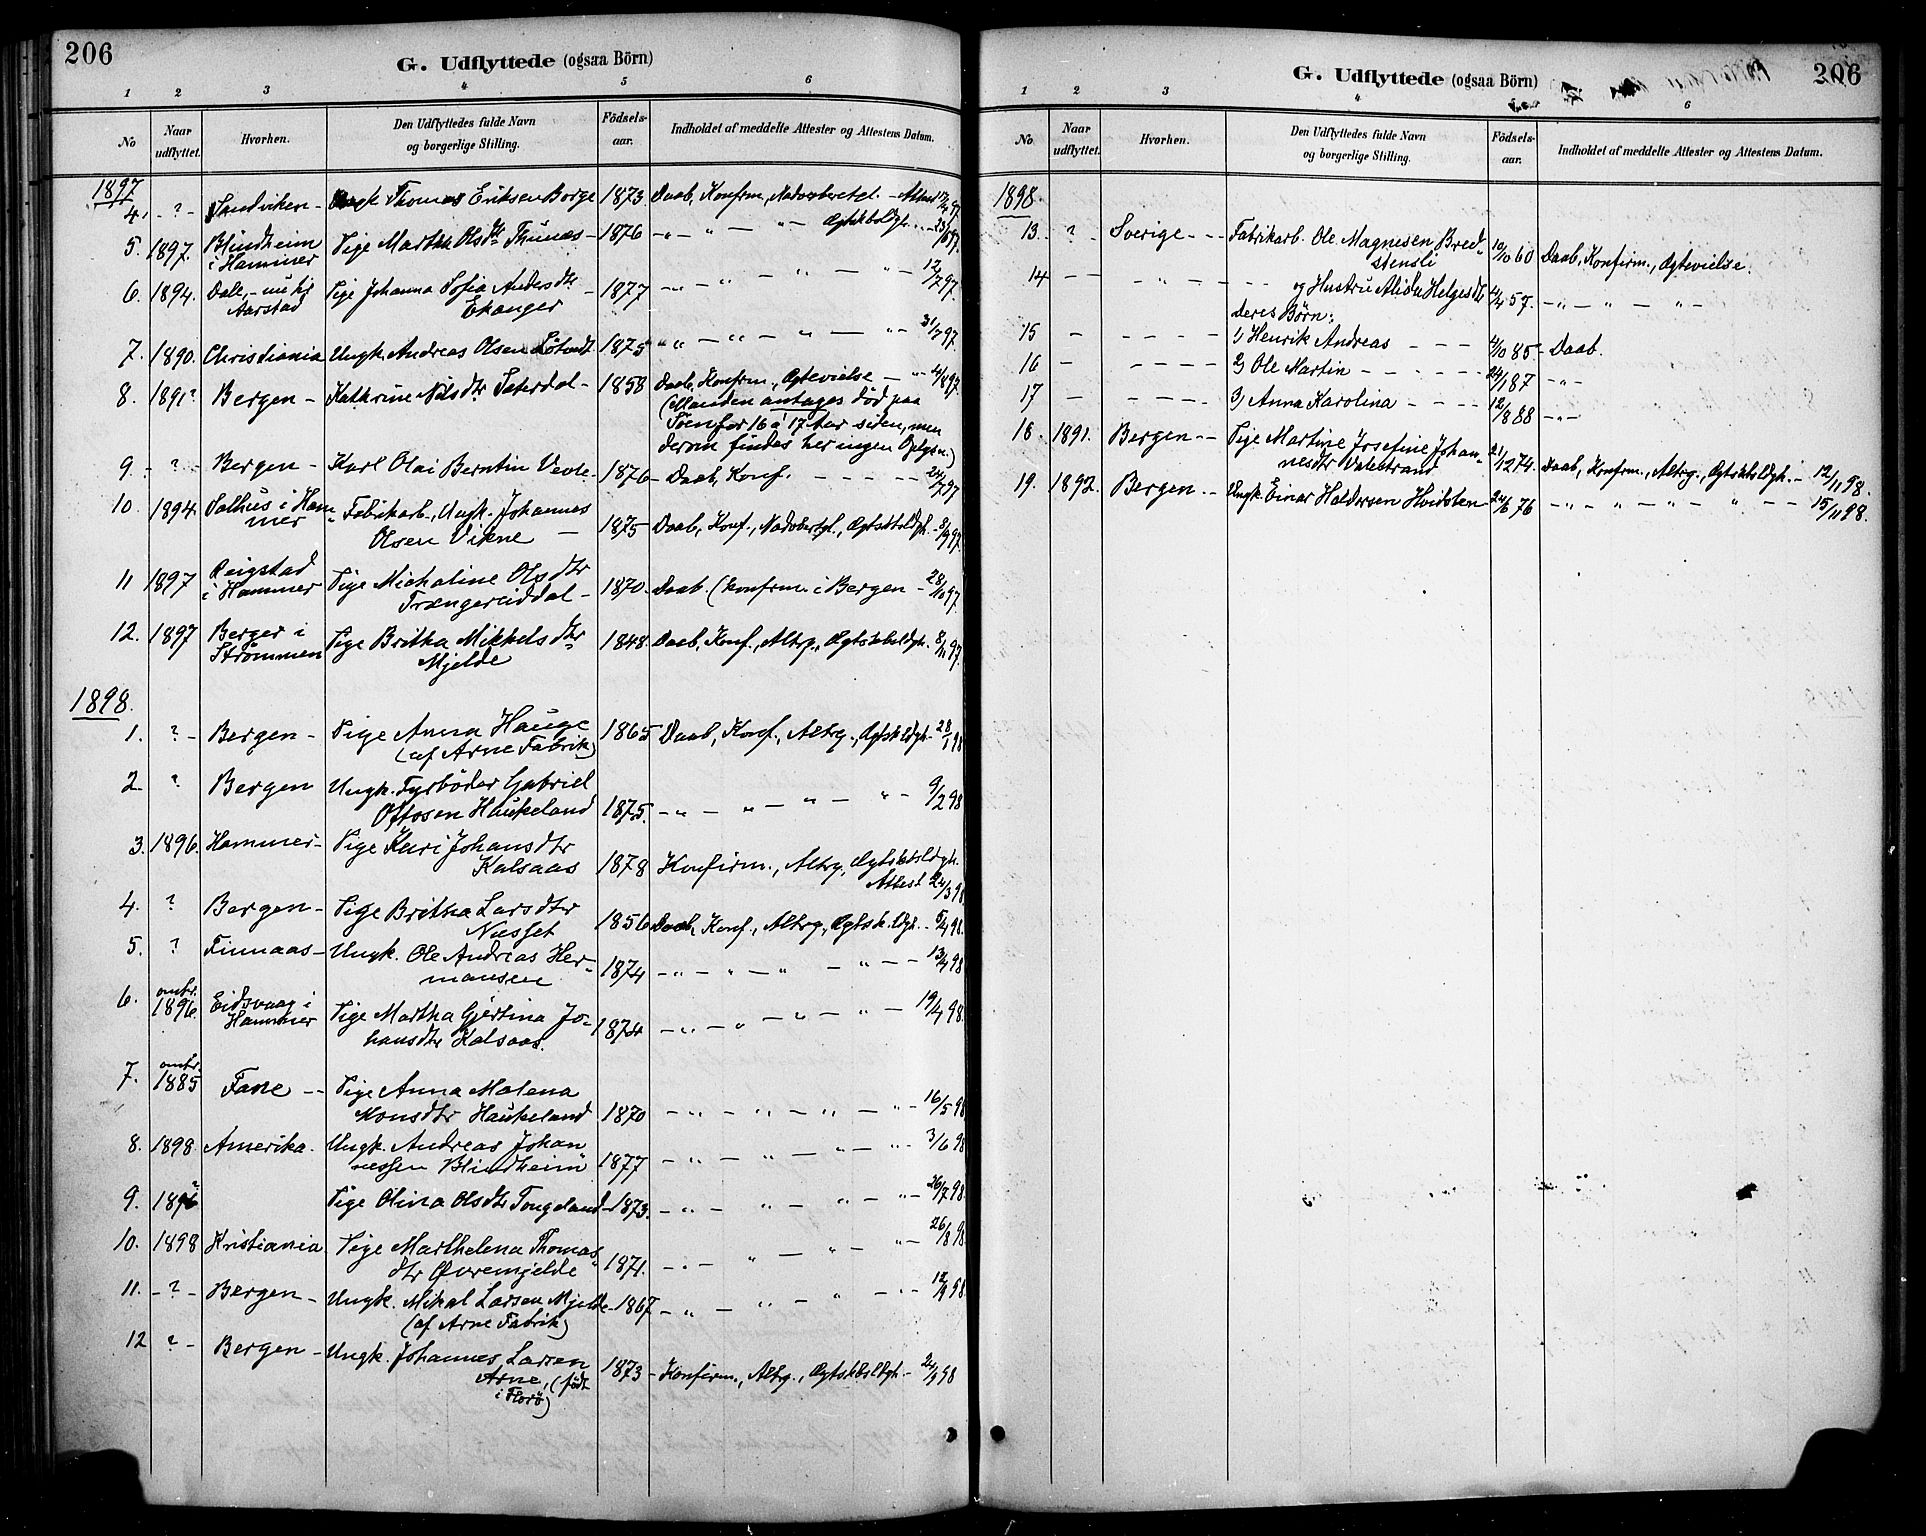 206
G. Udflyttede (ogsaa Börn)
1 2 3 4 5 6
No
Naar udflyttet.
Hvorhen.
Den Udflyttedes fulde Navn og borgerlige Stilling.
Födsels-aar.
Indholdet af meddelte Attester og Attestens Datum.
1897
4. - ? - Sandviken - Ungk Thomas Eriksen Borge 1873 Daab, Konfrm, Nadverberet. - Attest 17/4 97.
5. 1897. Blindheim i Hammer Pige Martha Olsdtr Thunæs - 1876 - " - " - " - Ægteskbsldgh. - 23/5 97.
6. 1894. Dale, - nu hj Aarstad Pige Johanna Sofia Andersdtr Ekanger - 1877 - " - " - " - " - 12/7 97.
7. 1890. Christiania Ungk. Andreas Olsen Lötvedt 1875 " " - " " - " - " - 31/7 97.
8. 1891? Bergen - Kathrine Nilsdtr Sæterdal - 1858 Daab, Konfrm., Ægtevielse - " 4/8 97.
(Manden antages död paa
Söen for 16 à 17 Aar siden, men
derom findes her ingen Oplysn.)
9. - ? - Bergen - Karl Olai Berntin Vevle - 1876 - Daab, Konf. - - - - - 24/7 97
10. 1894. Salhus i Hammer Fabrikarb., Ungk. Johannes
Olsen Vikne - 1875 Daab, Konf., Nadvbertgl., Ægtskbsldgh. - 8/9 97.
11 1897 Reigstad i Hammer Pige Michaline Olsdtr
Trængereiddal - 1870. Daab. (Konfrm. i Bergen - 28/10 97.
12. 1897 Berger i Strömmen Pige Britha Mikkelsdtr
Mjelde 1848. Daab, Konf., Altrg., Ægtskbsldgh. 8/11 97.
1898.
1. ? - Bergen - Pige Anna Hauge
(af Arne Fabrik) 1865 Daab, Konf., Altrg., Ægtskldgh. 28/1 98
2. ? Bergen Ungk. Fyrböder Gabriel
Ottosen Haukeland 1875. - " - " - " - " - 9/2 98
3. 1896. Hammer - Pige Kari Johansdtr
Kalsaas 1878 Konfirm., Altrg, Ægtskbsldgh.
Attest 24/3 98
4. ? Bergen - Pige Britha Larsdtr
Næsset 1856 Daab, Konf., Altrg., Ægtsk.ldgh. - 5/4 98.
5. ? Finnaas - Ungk. Ole Andreas Her-
mansen 1874 - " - " - " - " - - 13/4 98
6. omtr. 1896. Eidsvaag i Hammer Pige Martha Gjertina Jo-
hansdtr Kalsaas. 1874 - " - " - " - " - 19/4 98.
7. omtr. 1885 Fane - - Pige Anna Malena
Monsdtr Haukeland 1870 - " - " - " - " - 16/5 98
8. 1898. Amerika. Ungk. Andreas Johan
nessen Blindheim 1877 - " - " - " - " - 3/6 98
9. 1896? Pige Olina Olsdtr Tongeland - 1873. - " - " - " - " - 26/7 98.
10. 1898 Kristiania Pige Marthelena Thomas
dtr Øvremjelde 1871. - " - " - " - " - 26/8 98
11. - ? - Bergen - Ungk. Mikal Larsen Mjelde - 1867 - " - " - " - 12/9 98
(af Arne Fabrik)
12 ? - Bergen - Ungk. Johannes Larsen
Arne, (födt
i Florö) 1873 - Konfirm., Altrg., Ægtskbsldgh. - 24/9 98
G. Udflyttede (ogsaa Börn)
206
1 2 3 4 6
No
Naar udflyttet.
Hvorhen.
Den Udflyttedes fulde Navn og borgerlige Stilling.
Födsels-aar.
Indholdet af meddelte Attester og Attestens Datum.
1898.
13. ? Sverige - - Fabrikarb. Ole Magnesen Bred
stensli 10/10 60 Daab, Konfirm., Ægtevielse.
14 - - - " - - - og Hustru Alida Helgesdtr 4/4 57. - " - " - " -
deres Börn:
15 - - - - - 1) Henrik Andreas - - - 4/10 85 - Daab.
16 - - - - - 2) Ole Martin - - - - - 24/1 87 - " -
17 - - - - - 3) Anna Karolina - - - 12/8 88 - " -
18. 1891. Bergen - - Pige Martine Josefine Johan-
nesdtr Valestrand 21/12 74. Daab, Konfrm., Altrg., Ægtskbsldgh. - 12/11 98.
19. 1892. Bergen - - Ungk. Einar Haldorsen Hvidsten - 24/6 76 - " - " - " - " - - 15/11 98.